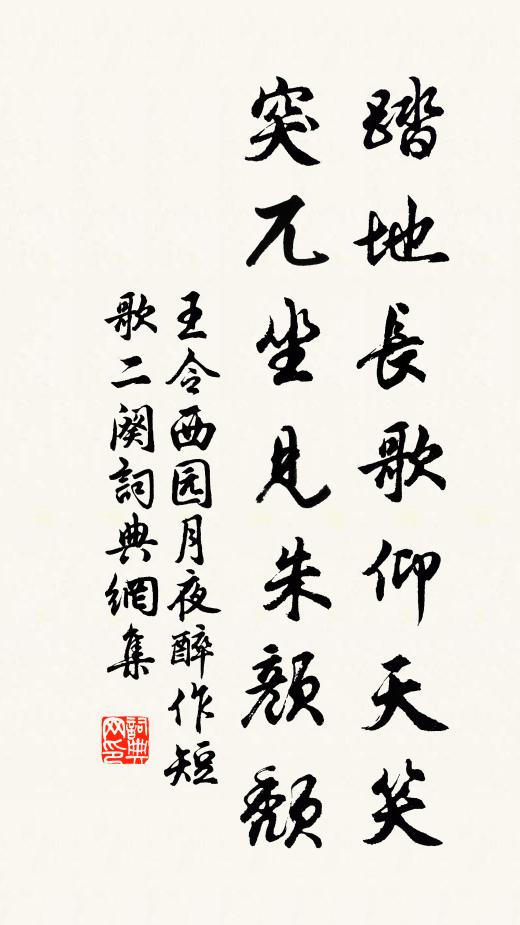 踏地長歌仰天笑
突兀坐見朱顏頹
王令西园月夜醉作短
歌二闋詞典網集
詞典
网印